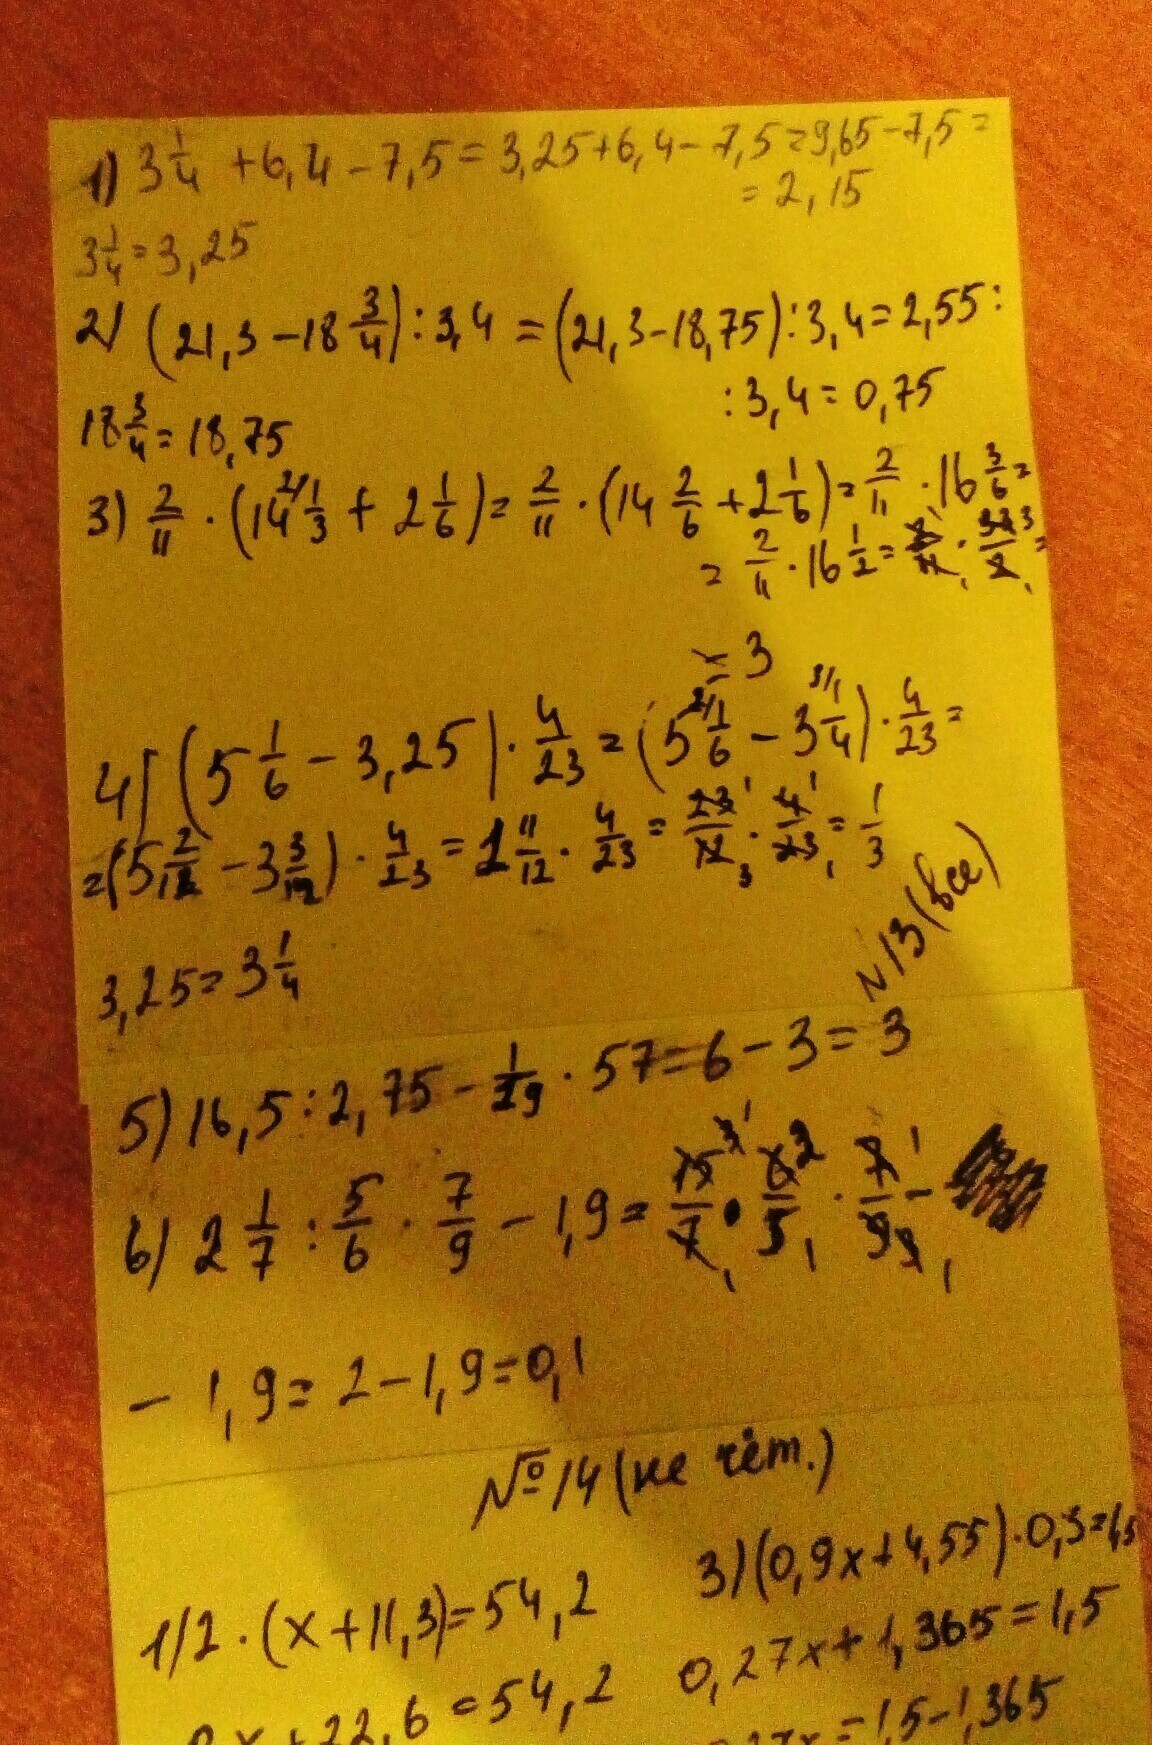 1) 3 1/4 + 6,4 - 7,5 = 3,25 + 6,4 - 7,5 = 9,65 - 7,5 =
= 2,15
3 1/4 = 3,25
2) (21,3 - 18 3/4) : 3,4 = (21,3 - 18,75) : 3,4 = 2,55 :
: 3,4 = 0,75
18 3/4 = 18,75
3) 2/11 · (14 1/3 + 2 1/6) = 2/11 · (14 2/6 + 2 1/6) = 2/11 · 16 3/6 =
= 2/11 · 16 1/2 = 2/11 · 33/2 =
= 3
4) (5 1/6 - 3,25) · 4/23 = (5 1/6 - 3 1/4) · 4/23 =
= (5 2/12 - 3 3/12) · 4/23 = 1 11/12 · 4/23 = 23/12 · 4/23 = 1/3
3,25 = 3 1/4
№13 (все)
5) 16,5 : 2,75 - 1/19 · 57 = 6 - 3 = 3
6) 2 1/7 : 5/6 · 7/9 - 1,9 = 15/7 · 6/5 · 7/9 -
- 1,9 = 2 - 1,9 = 0,1
№14 (не чёт.)
1) 2 · (x + 11,3) = 54,2
3) (0,9x + 4,55) · 0,3 = 1,5
0,27x + 1,365 = 1,5
2x + 22,6 = 54,2
0,27x = 1,5 - 1,365